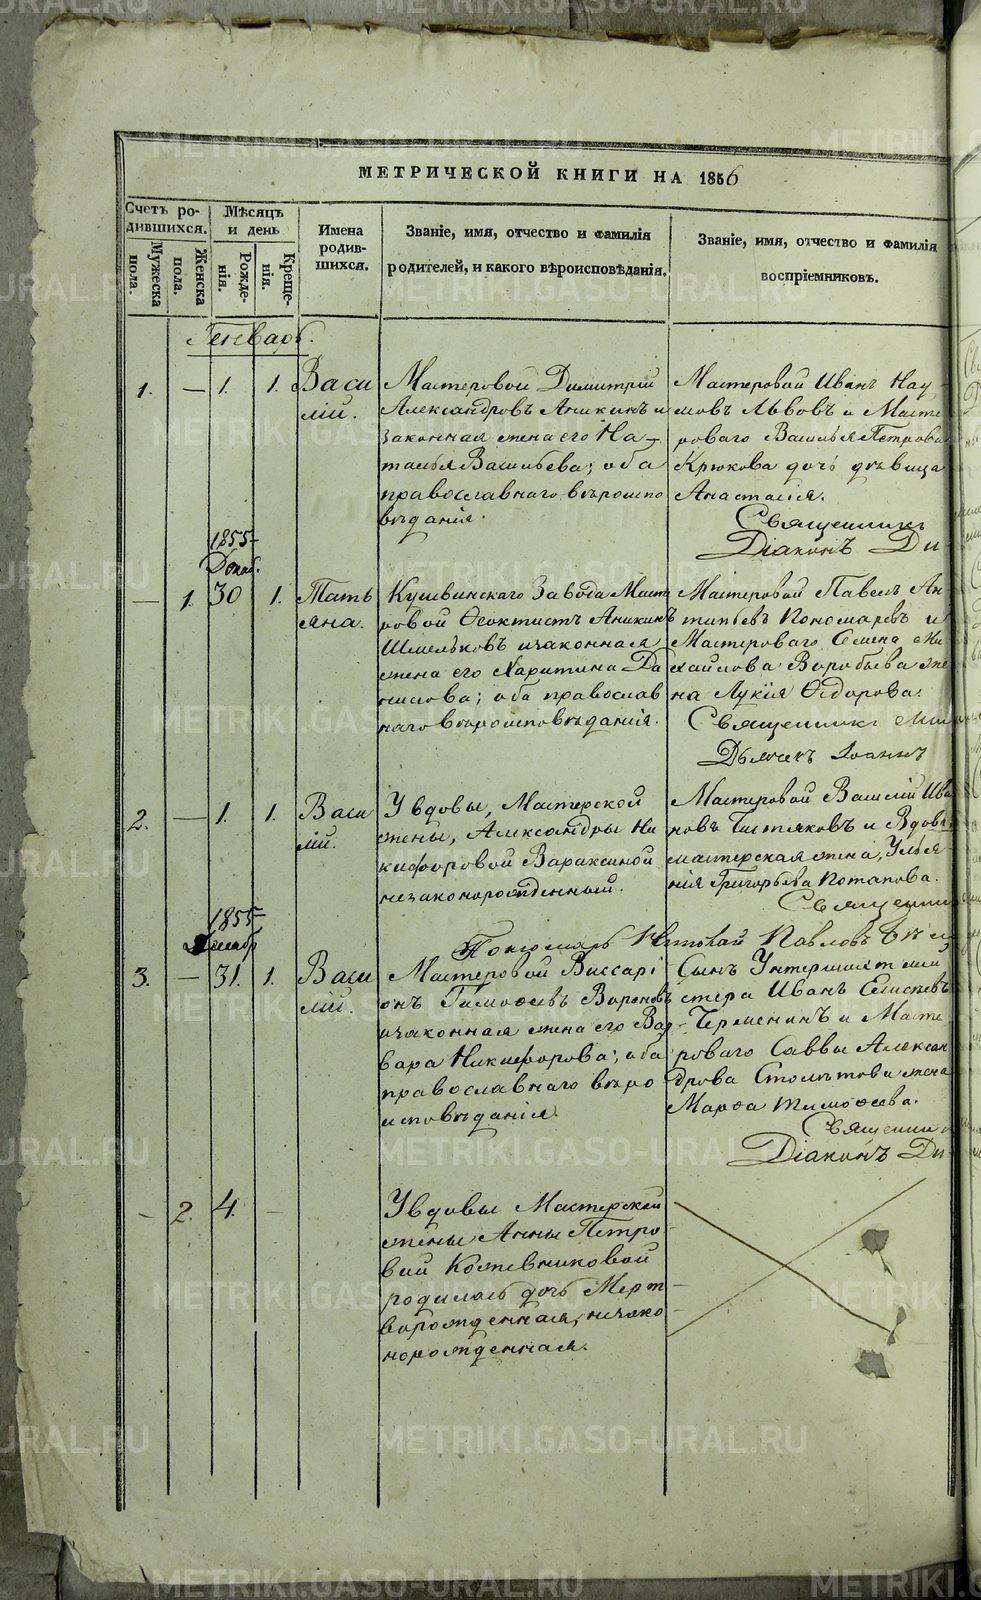 МЕТРИЧЕСКОЙ КНИГИ НА 1856
Счетъ родившихся.
Мужеска пола.
Женска пола.
Мѣсяцъ и день
Рожденія.
Крещенія.
Имена родившихся.
Званіе, имя, отчество и фамилія
родителей, и какого вѣроисповѣданія.
Званіе, имя, отчество и фамилія
воспріемниковъ.
Генварь.
1. — 1. 1.
Васи
лій.
Мастеровой Димитрій
Александровъ Аникинъ и
законная жена его На-
талья Васильева; оба
православнаго вѣроиспо
вѣданія.
Мастеровой Иванъ Нау
мовъ Львовъ и Масте
роваго Василья Петрова
Крюкова дочь дѣвица
Анастасія.
Священникъ
Діаконъ Ди-
1855
Декаб.
— 1. 30 1.
Тать
яна.
Кушвинскаго Завода Масте
ровой Ѳеоктистъ Аникинъ
Шмельковъ изаконная
жена его Харитина Да
нилова; оба православ
наго вѣроисповѣданія.
Мастеровой Павелъ Ан
типьевъ Пономаревъ и
Мастероваго Семена Ми
хайлова Воробьева же
на Лукія Ѳедорова.
Священникъ Мих
Дьячекъ Іоаннъ
2. — 1. 1.
Васи
лій.
У вдовы, Мастерской
жены, Александры Ни
кифоровой Вараксиной
незаконорожденный.
Мастеровой Василій Ива
новъ Чистяковъ и Вдова
мастерская жена, Улья
нія Григорьева Потапова.
Священни
Пономарь Николай Павловъ
1855
Декабр
3. — 31. 1.
Васи
лій.
Мастеровой Виссарі
онъ Тимоѳеевъ Вороновъ
изаконная жена его Вар
вара Никифорова; оба
православнаго вѣро
исповѣданія.
Сынъ Унтершихтмей
стера Иванъ Елисѣевъ
Черменинъ и Масте
роваго Саввы Алексан
дрова Столѣтова жена
Марѳа Тимоѳеева.
Священни
Діаконъ Ди-
— 2. 4. —
У вдовы Мастерской
жены Анны Петро
вой Кожевниковой
родилась дочь Мерт
ворожденная, незако
норожденная.
METRIKI.GASO-URAL.RU